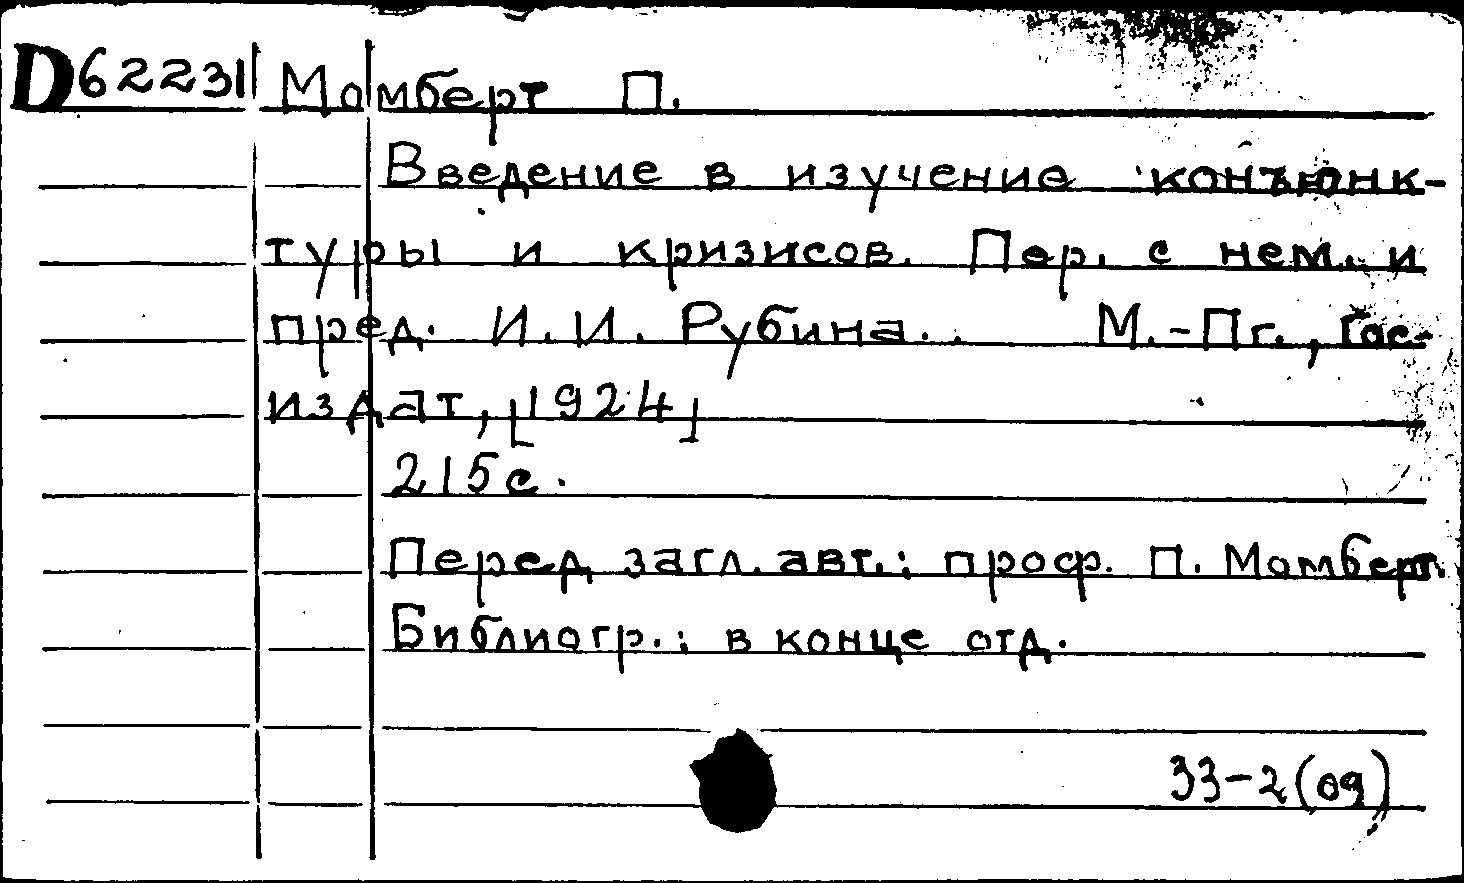 D62231 Момберт П.
Введение в изучение конъюнк-
туры и кризисов. Пер. с нем. и
пред. И.И. Рубина.. М.-Пг., Гос-
издат, [1924]
215 с.
Перед загл. авт.: проф. П. Момберт.
Библиогр.: в конце отд.
33-2(09)